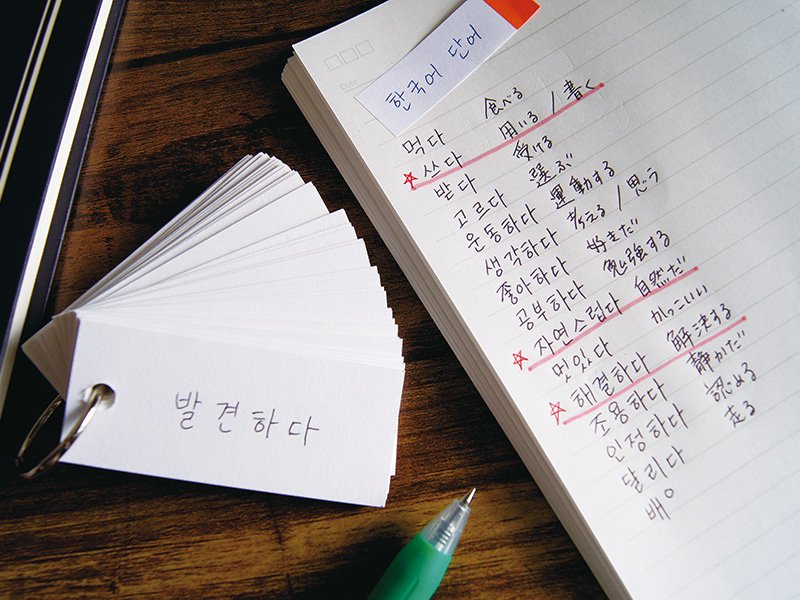 한국어 단어
Date
먹다 食べる
☆쓰다 用いる / 書く
받다 受ける
고르다 選ぶ
운동하다 運動する
생각하다 考える / 思う
좋아하다 好きだ
공부하다 勉強する
☆자연스럽다 自然だ
멋있다 かっこいい
☆해결하다 解決する
조용하다 静かだ
인정하다 認める
달리다 走る
배ㅇ
발견하다